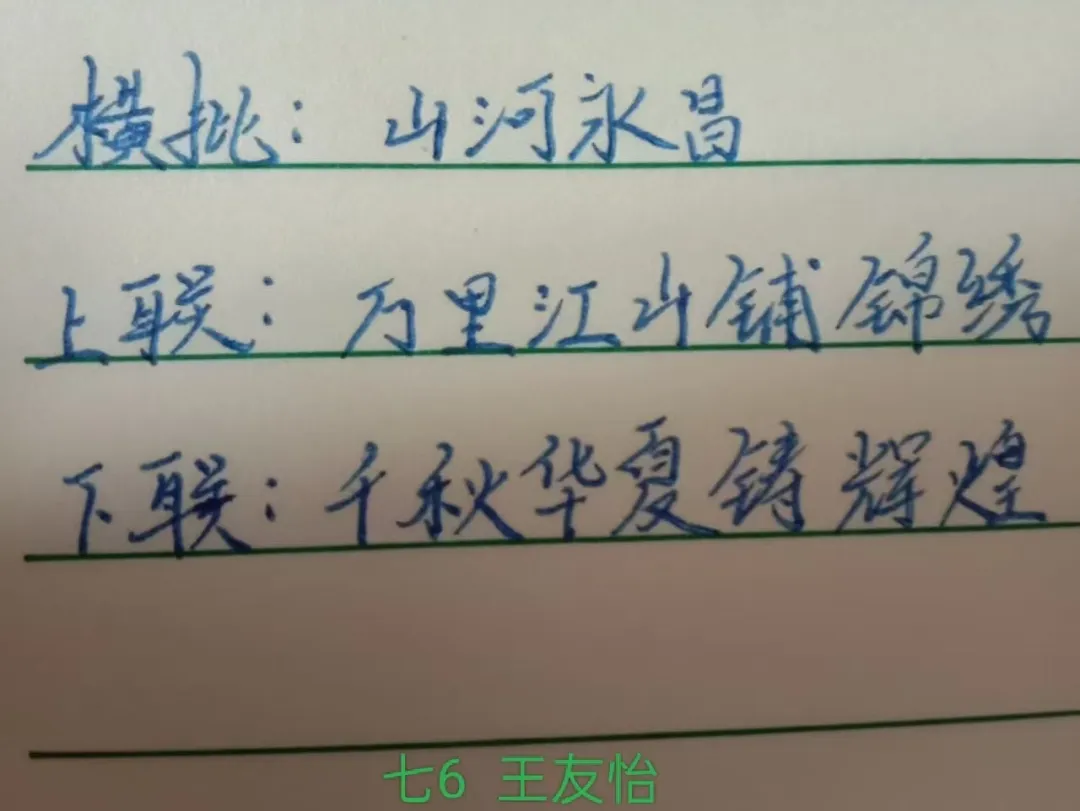 横批：山河永昌
上联：万里江山铺锦绣
下联：千秋华夏铸辉煌
七6 王友怡